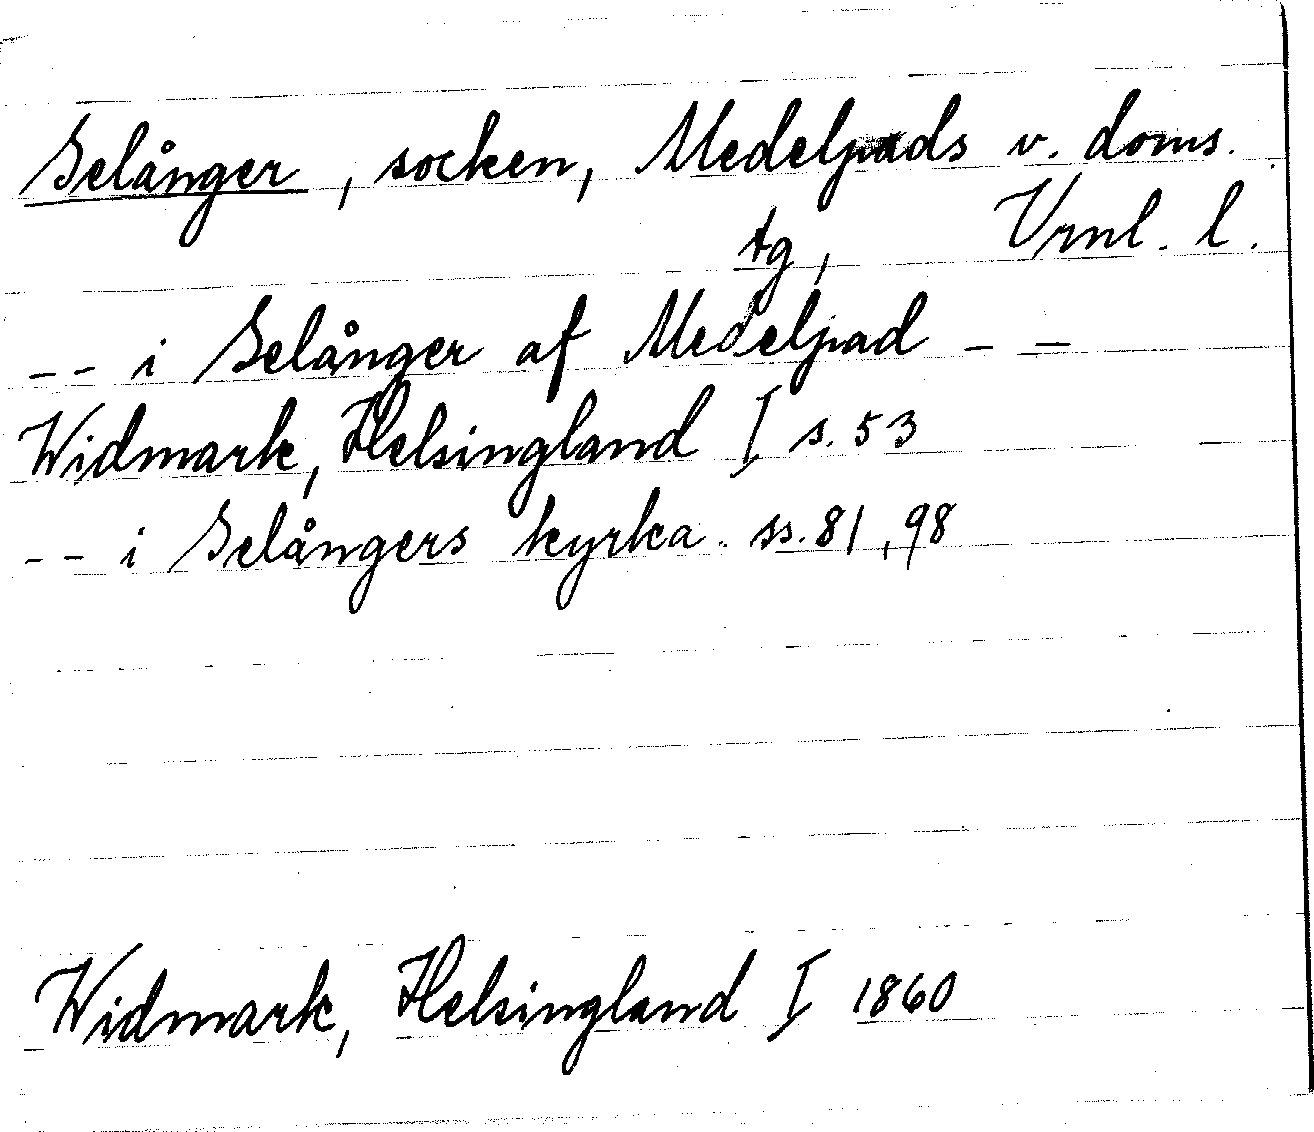 Selånger, socken, Medelpads v. doms.
tg, Vrnl. l.
-- i Selånger af Medelpad - -
Widmark, Helsingland I s. 53
-- i Selångers kyrka. ss. 81, 98
Widmark, Helsingland I 1860